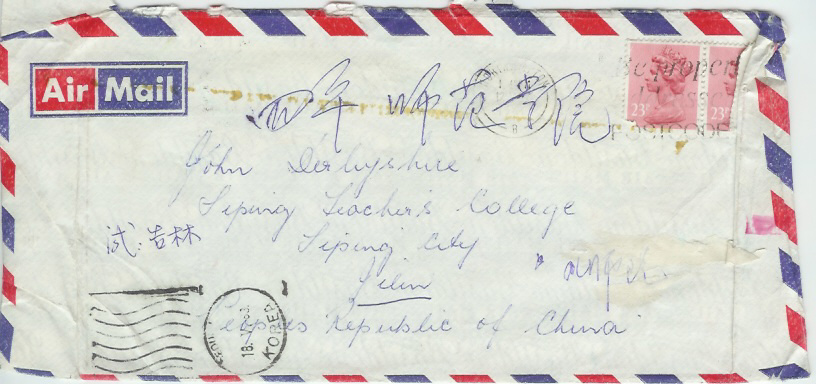 Air Mail
四平师范学院
23 23
POSTCODE
John Derbyshire
Siping Teacher's College
试:吉林
Siping City
Jilin
Peoples Republic of China
SEOUL
18
KOREA